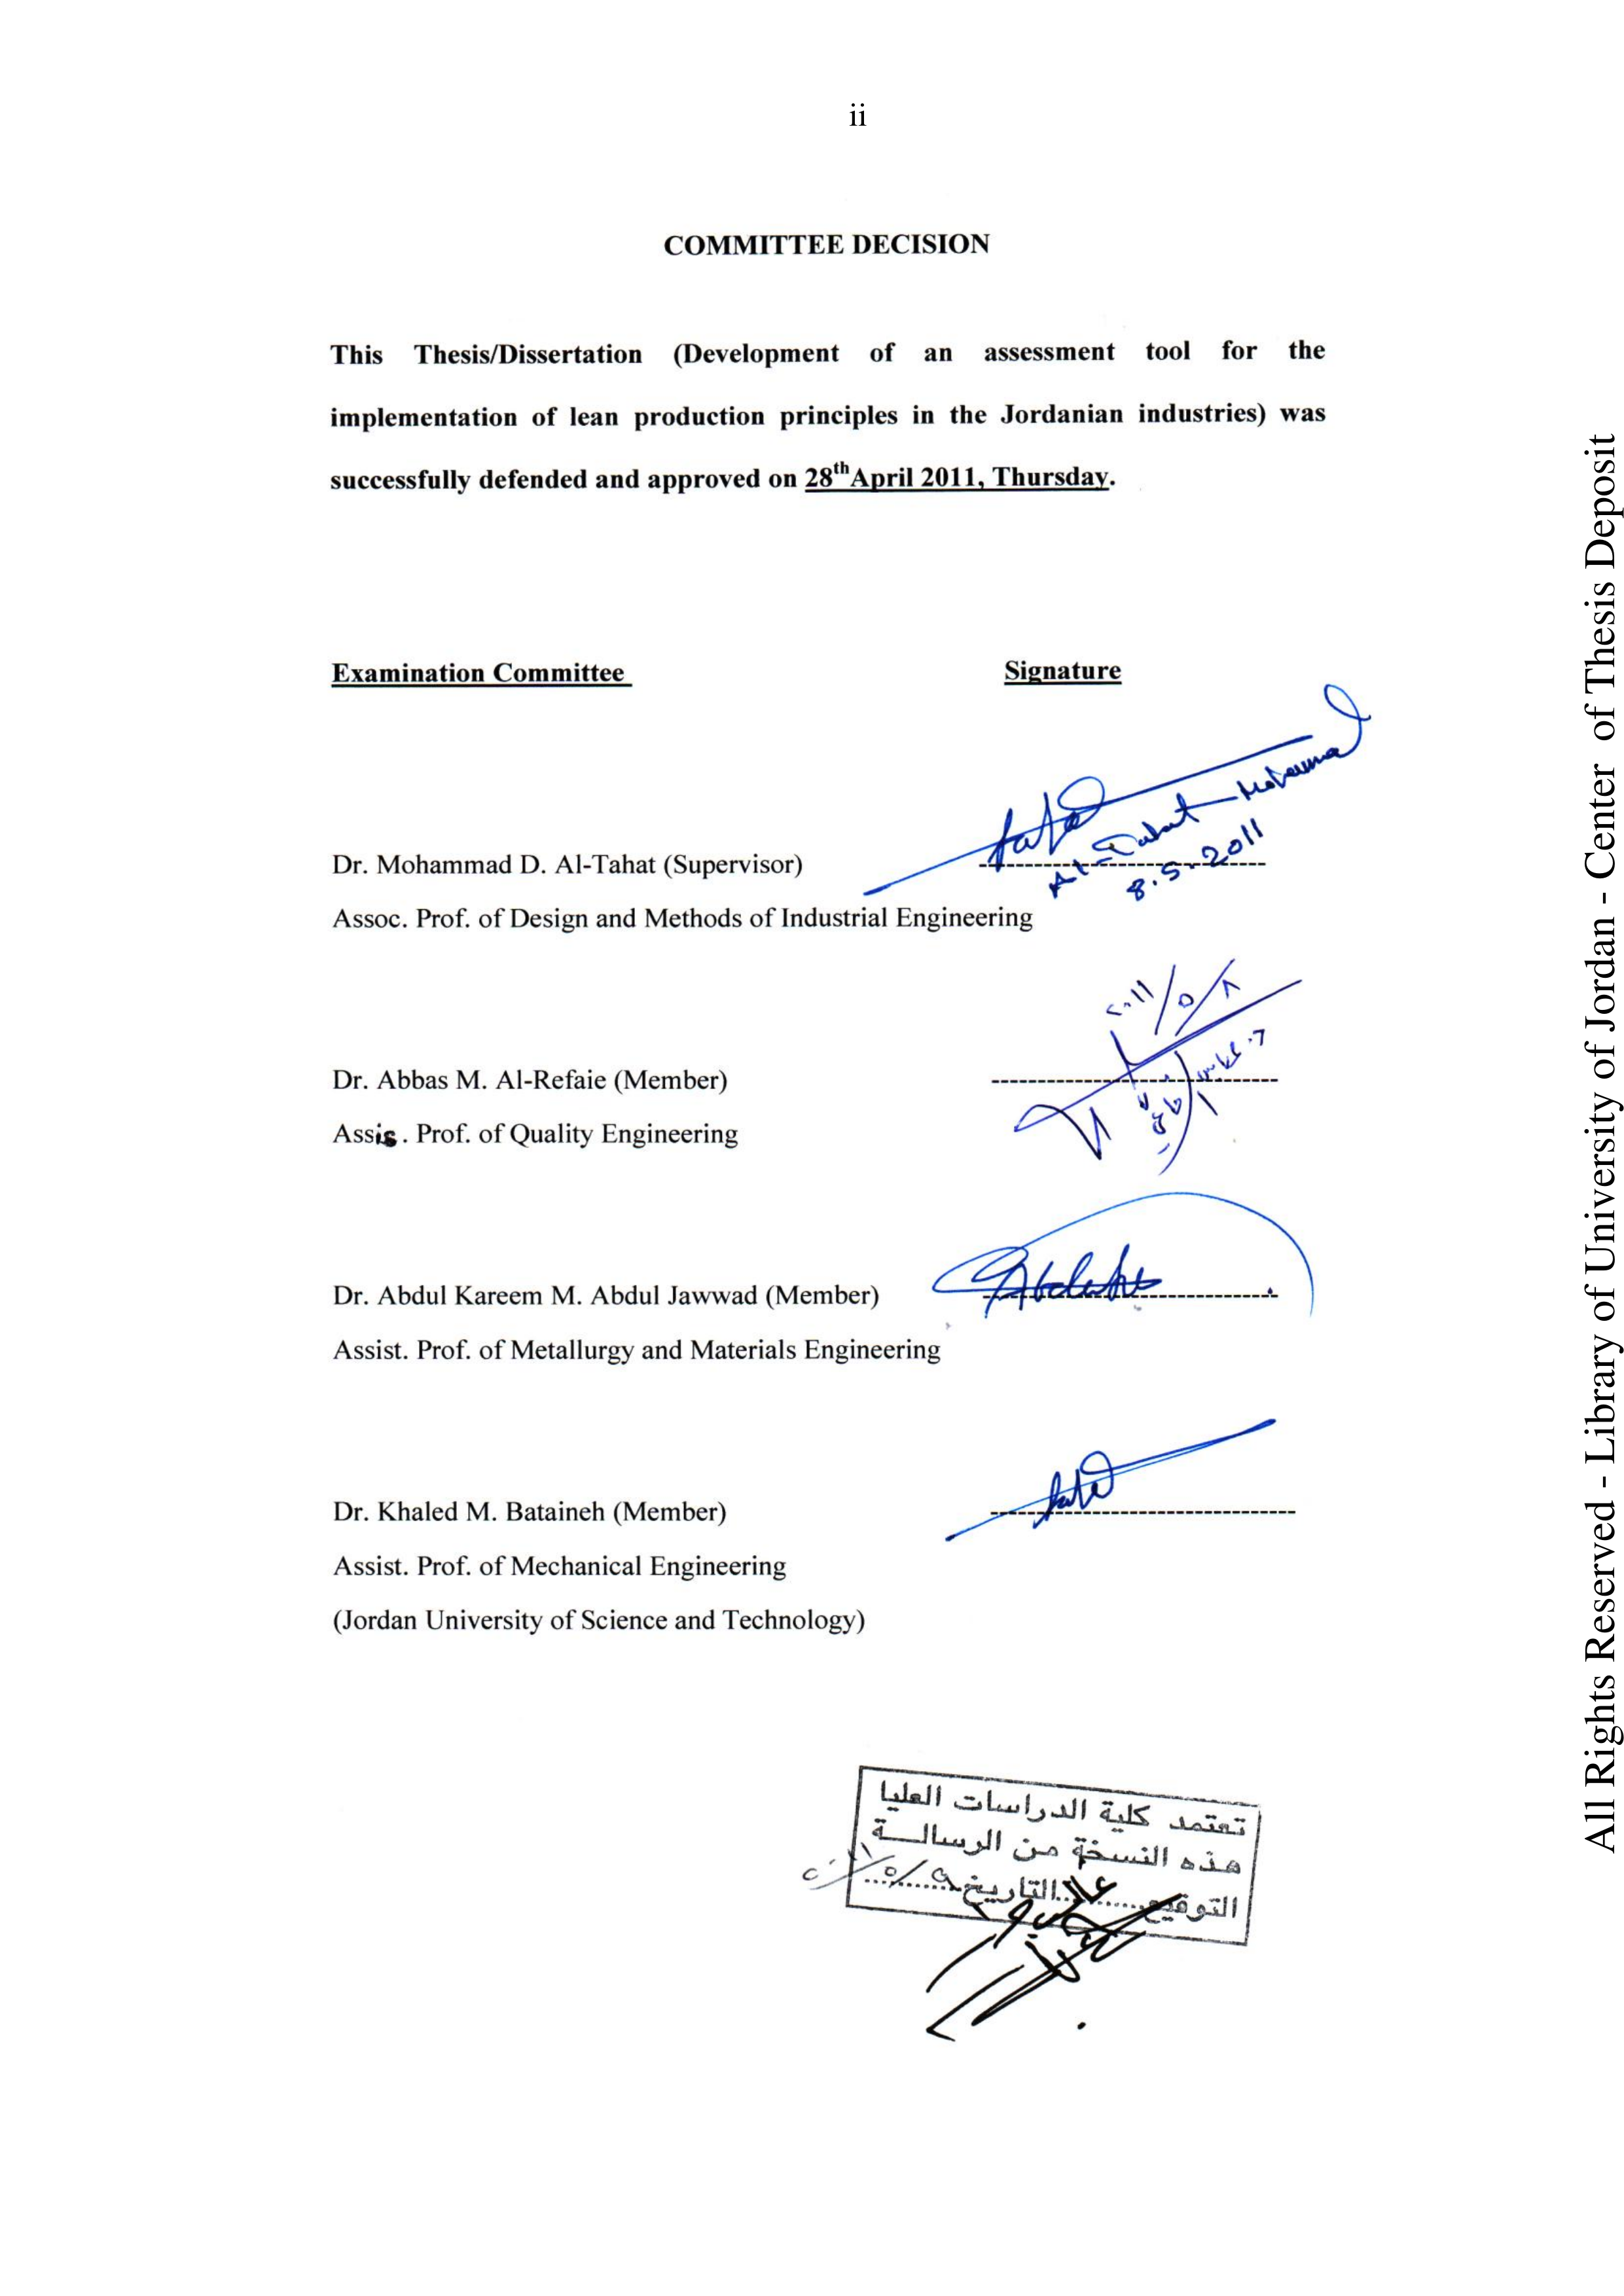 ii
COMMITTEE DECISION
This Thesis/Dissertation (Development of an assessment tool for the
implementation of lean production principles in the Jordanian industries) was
successfully defended and approved on 28th April 2011, Thursday.
Examination Committee Signature
Dr. Mohammad D. Al-Tahat (Supervisor)
Al-Tahat Mohammad
8.5.2011
Assoc. Prof. of Design and Methods of Industrial Engineering
٢٠١١/٥/٨
Dr. Abbas M. Al-Refaie (Member)
Assis. Prof. of Quality Engineering
Dr. Abdul Kareem M. Abdul Jawwad (Member)
Assist. Prof. of Metallurgy and Materials Engineering
Dr. Khaled M. Bataineh (Member)
Assist. Prof. of Mechanical Engineering
(Jordan University of Science and Technology)
تعتمد كلية الدراسات العليا
هذه النسخة من الرسالــة
التوقيع..........التاريخ..........
All Rights Reserved - Library of University of Jordan - Center of Thesis Deposit